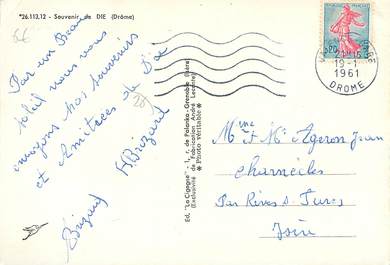 26.113.12 - Souvenir de DIE (Drôme)
Par un Beau
soleil nous vous
envoyons nos souvenirs
et Amitiées de Die
A. Brizard
Brizard
Ed. "La Cigogne" - 1, r. de Palanka - Grenoble (Isère)
(Exclusivité de Fabrication André Leconte)
* Photo véritable *
0,20
19-1
1961
DROME
Mme & M. Ageron Jean
Charnècles
Par Rives s. Fures
Isère